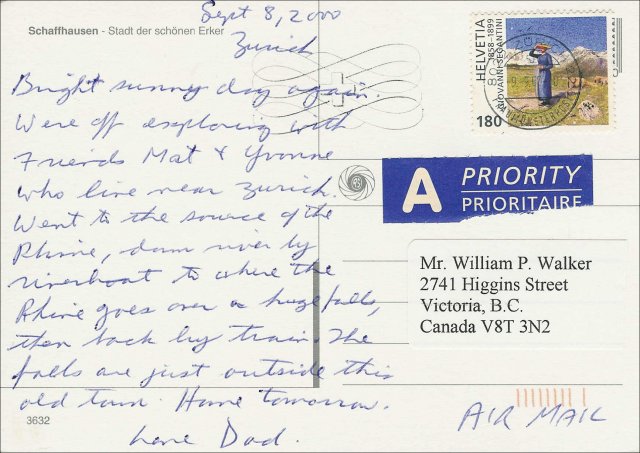 Schaffhausen - Stadt der schönen Erker
Sept 8, 2000
Zurich
Bright sunny day again.
Were off exploring with
Friends Mat & Yvonne
who live near Zurich.
Went to the source of the
Rhine, down river by
riverboat to where the
Rhine goes over a huge falls,
then back by train. The
falls are just outside this
old town. Home tomorrow.
Love Dad.
3632
HELVETIA
1858-1899
GIOVANNI SEGANTINI
180
A PRIORITY
PRIORITAIRE
Mr. William P. Walker
2741 Higgins Street
Victoria, B.C.
Canada V8T 3N2
AIR MAIL